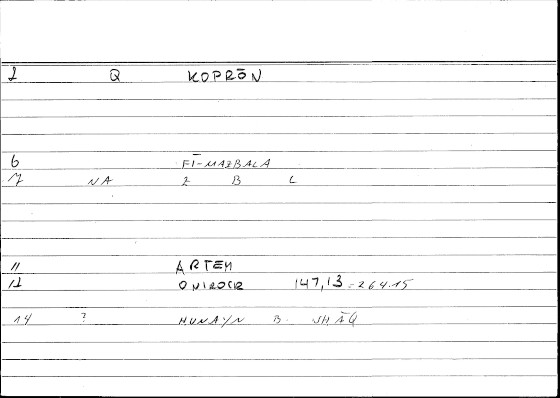 1 Q KOPRŌN
6 FĪ-MAZBALA
7 NA Z B L
11 ARTEM
12 ONIROCR 147,13 = 264.15
14 ? HUNAYN B. ISHĀQ